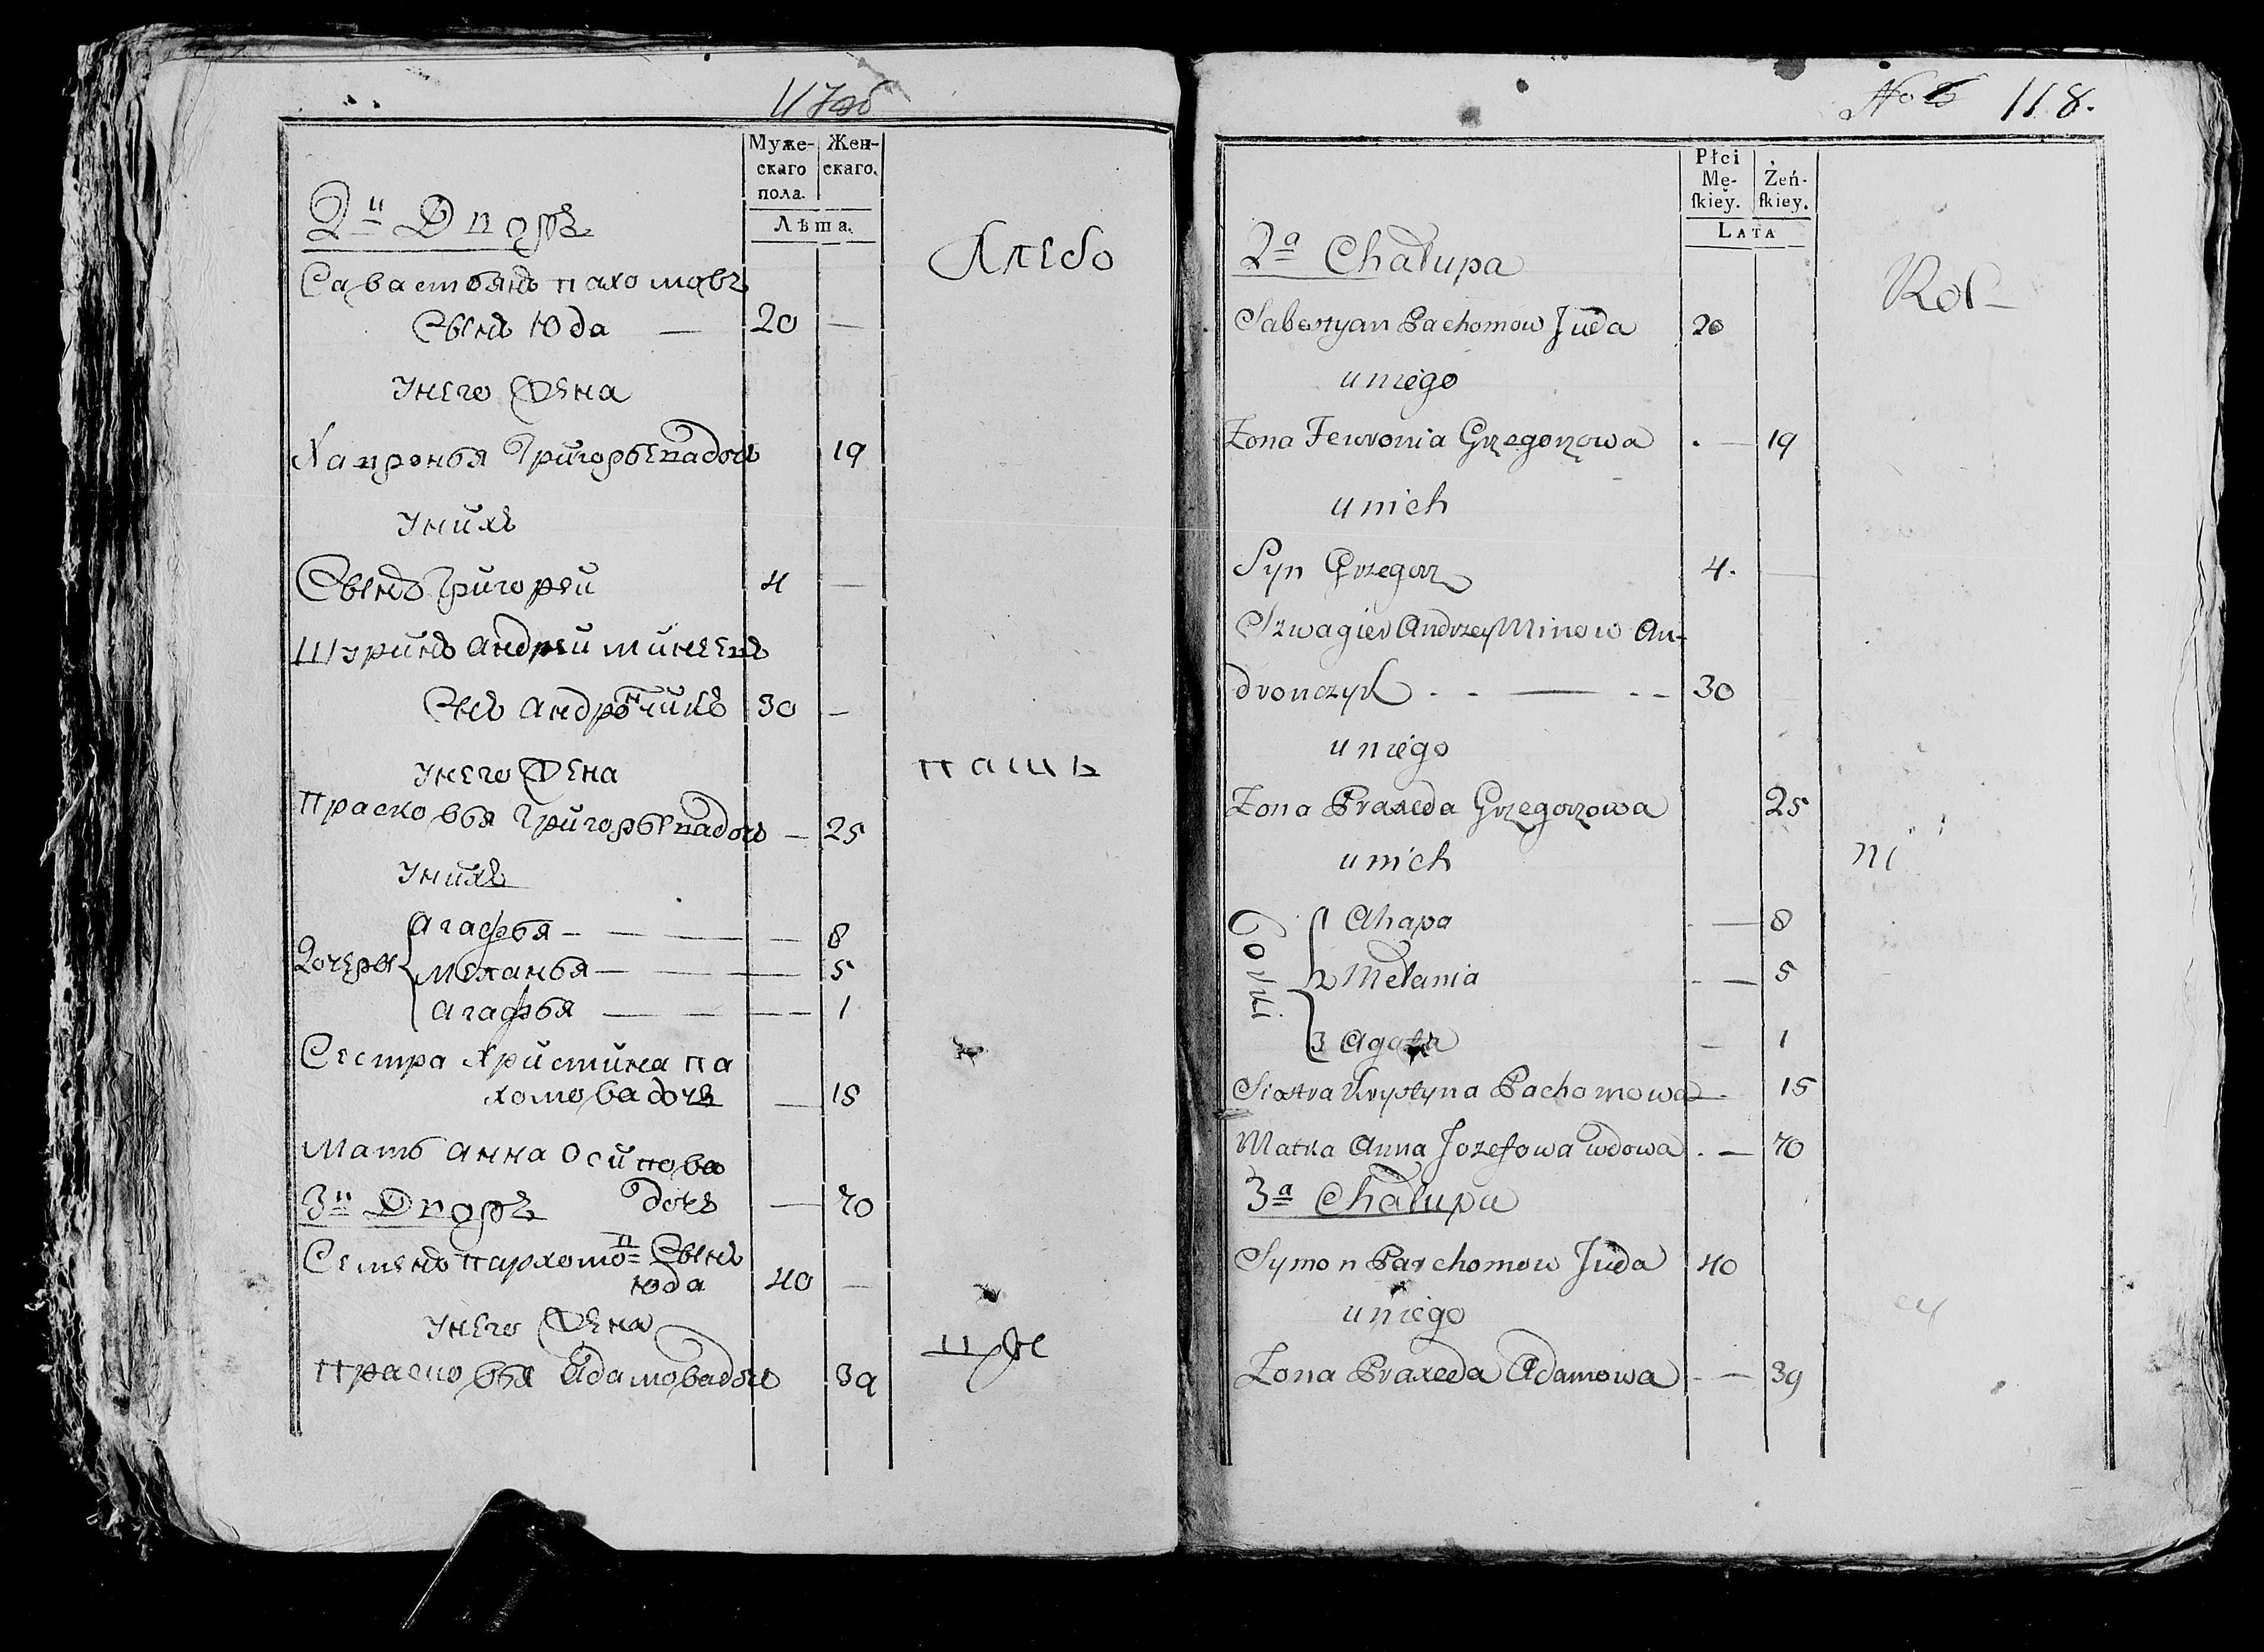 117об
Муже-
скаго
пола.
Жен-
скаго.
Лѣта.
2й Дворъ
Хлебо
Савастьянъ пахомовъ
Сынъ Юда — 20 —
Унего Жена
Хапронья Григорьевадочь 19
Унихъ
Сынъ Григорей 4 —
Шуринъ андрей минеевъ
Снъ андрончикъ 30 —
Унего Жена
пашъ
прасковья Григорьевадочь — 25
Унихъ
Дочеры
агафья — 8
меланья — 5
агафья — 1
Сестра Христина па
хомовадочь — 15
Мать анна Осипова
дочь — 70
3й Дворъ
Семенъ пархомо=в Сынъ
юда 40 —
Унего Жена
цы
прасковья адамовадочь 39
118.
Płci
Mę-
ſkiey.
Żeń-
ſkiey.
LATA
2a Chałupa
Rol-
Sabestyan Pachomow Juda 20
u niego
Zona Fewronia Grzegorzowa . — 19
u nich
Syn Grzegorz 4. —
Szwagier Andrzey Minow An-
dronczyk . - — - - 30
u niego
Zona Praxeda Grzegorzowa 25
u nich
ni
Corki
1 Ahapa - — 8
2 Melania - — 5
3 Agata — 1
Siostra Krystyna Pachomowa — . 15
Matka Anna Jozefowa wdowa . — 70
3a Chałupa
Symon Parchomow Juda 40
u niego
cy
Zona Praxeda Adamowa - — 39